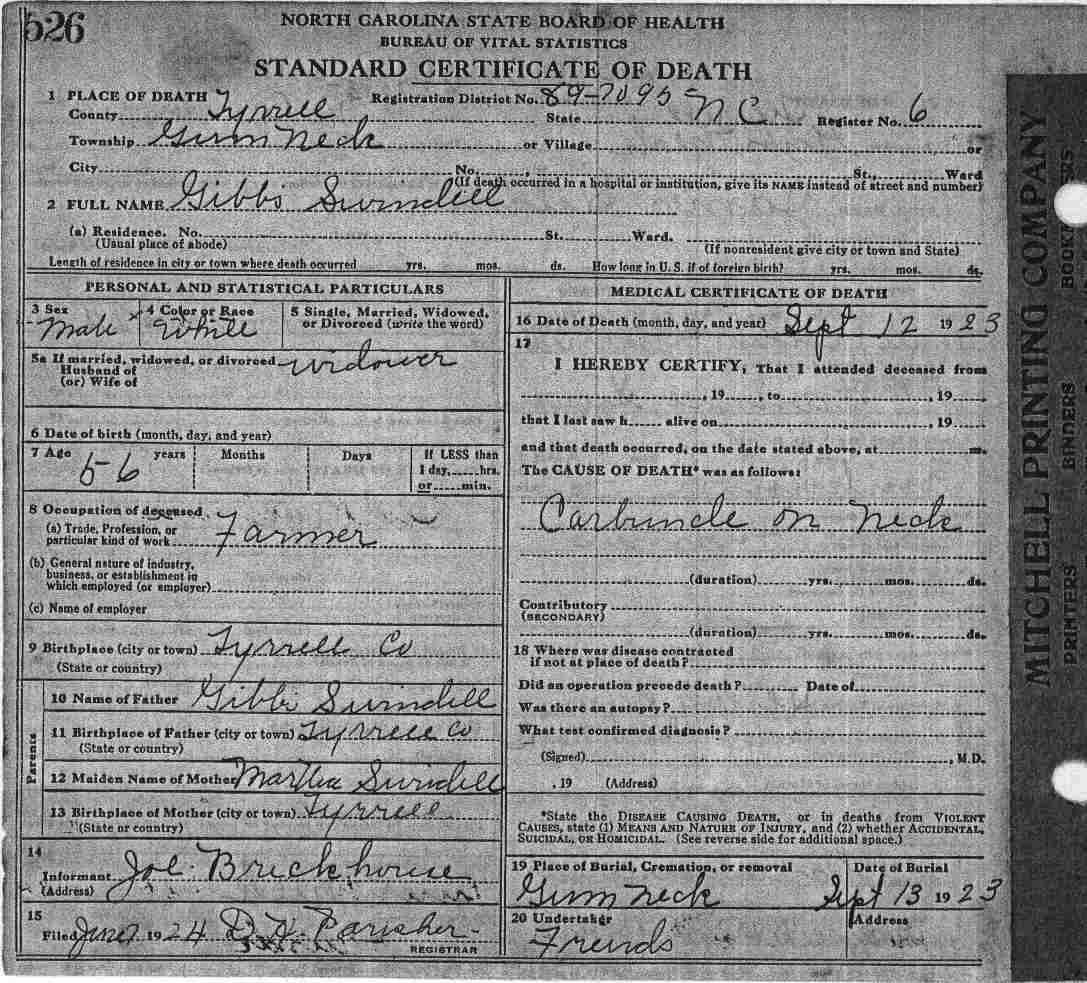 526
NORTH CAROLINA STATE BOARD OF HEALTH
BUREAU OF VITAL STATISTICS
STANDARD CERTIFICATE OF DEATH
1 PLACE OF DEATH Registration District No. 89-7095
County Tyrrell State N C Register No. 6
Township Gum Neck or Village or
City No. St., Ward
(If death occurred in a hospital or institution, give its NAME instead of street and number)
2 FULL NAME Gibbs Swindell
(a) Residence. No. St. Ward.
(Usual place of abode) (If nonresident give city or town and State)
Length of residence in city or town where death occurred yrs. mos. ds. How long in U. S. if of foreign birth? yrs. mos. ds.
PERSONAL AND STATISTICAL PARTICULARS
3 Sex 4 Color or Race 5 Single, Married, Widowed,
or Divorced (write the word)
Male White
5a If married, widowed, or divorced widower
Husband of
(or) Wife of
6 Date of birth (month, day, and year)
7 Age 56 years Months Days If LESS than
1 day, hrs.
or min.
8 Occupation of deceased
(a) Trade, Profession, or
particular kind of work Farmer
(b) General nature of industry,
business, or establishment in
which employed (or employer)
(c) Name of employer
9 Birthplace (city or town) Tyrrell Co
(State or country)
Parents
10 Name of Father Gibbs Swindell
11 Birthplace of Father (city or town) Tyrrell Co
(State or country)
12 Maiden Name of Mother Martha Swindell
13 Birthplace of Mother (city or town) Tyrrell
(State or country)
14
Informant Joe Brickhouse
(Address)
15
Filed 1924 Parisher
REGISTRAR
MEDICAL CERTIFICATE OF DEATH
16 Date of Death (month, day, and year) Sept 12 1923
17
I HEREBY CERTIFY, That I attended deceased from
, 19 , to , 19
that I last saw h alive on , 19
and that death occurred, on the date stated above, at m.
The CAUSE OF DEATH* was as follows:
Carbuncle on Neck
(duration) yrs. mos. ds.
Contributory
(SECONDARY)
(duration) yrs. mos. ds.
18 Where was disease contracted
if not at place of death?
Did an operation precede death? Date of
Was there an autopsy?
What test confirmed diagnosis?
(Signed) , M.D.
, 19 (Address)
*State the DISEASE CAUSING DEATH, or in deaths from VIOLENT
CAUSES, state (1) MEANS AND NATURE OF INJURY, and (2) whether ACCIDENTAL,
SUICIDAL, OR HOMICIDAL. (See reverse side for additional space.)
19 Place of Burial, Cremation, or removal Date of Burial
Gum Neck Sept 13 1923
20 Undertaker Address
Friends
MITCHELL PRINTING COMPANY
PRINTERS BINDERS